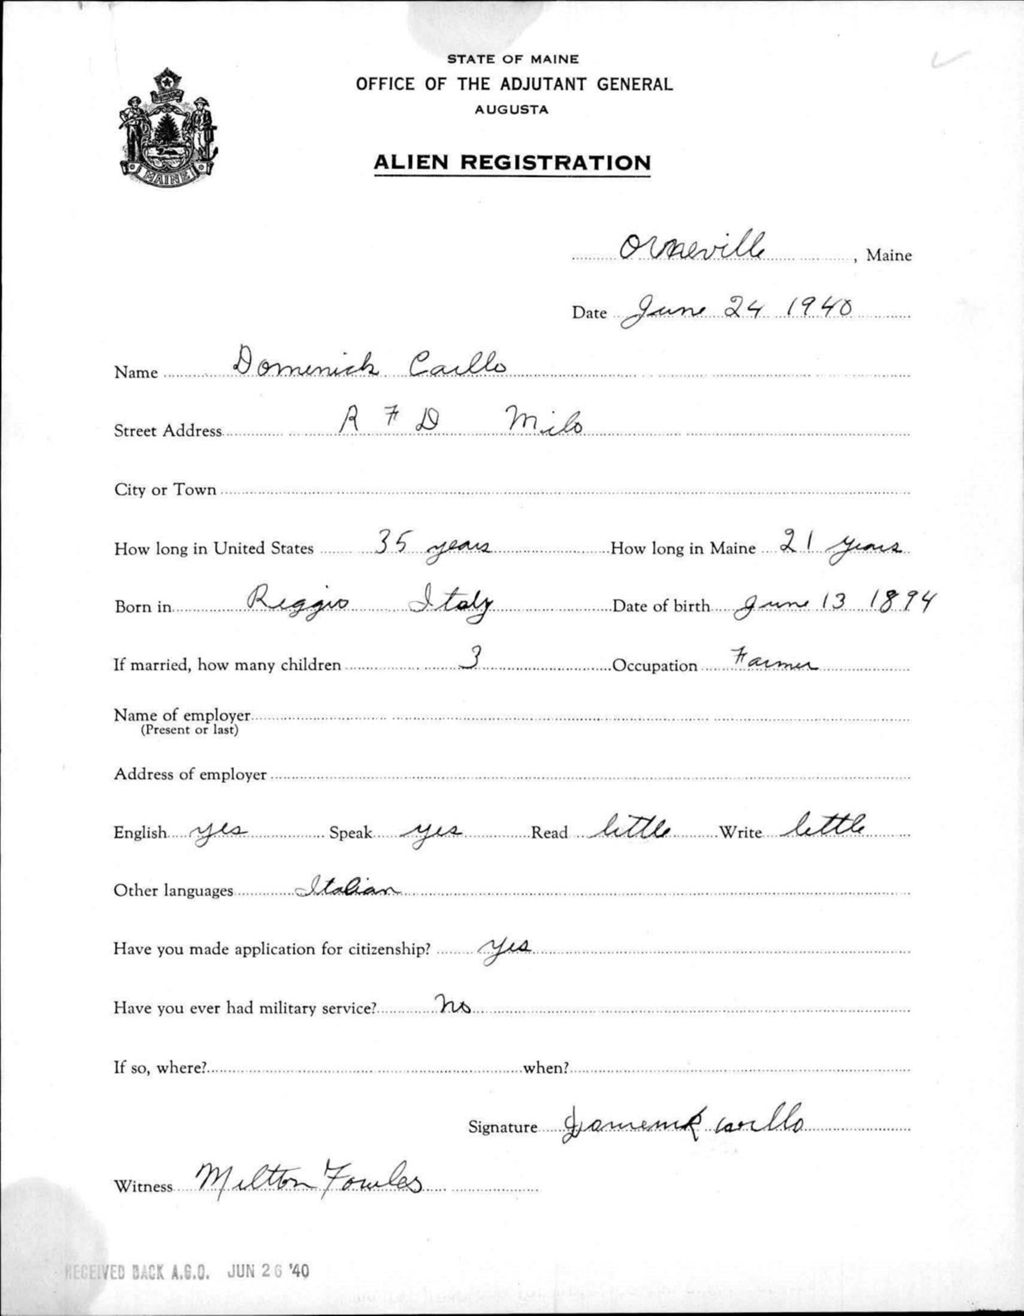 STATE OF MAINE
OFFICE OF THE ADJUTANT GENERAL
AUGUSTA
ALIEN REGISTRATION
MAINE
Orneville, Maine
Date June 24 1940
Name Domenick Caillo
Street Address R F D Milo
City or Town
How long in United States 35 years How long in Maine 21 years
Born in Reggio Italy Date of birth June 13 1894
If married, how many children 3 Occupation Farmer
Name of employer
(Present or last)
Address of employer
English yes Speak yes Read little Write little
Other languages Italian
Have you made application for citizenship? yes
Have you ever had military service? no
If so, where? when?
Signature Domenick
Witness Milton Fowles
RECEIVED BACK A.G.O. JUN 26 '40